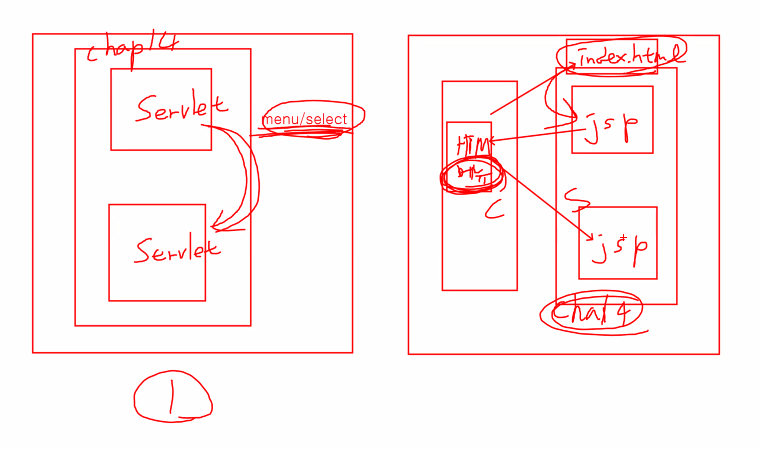 chap14
Servlet
menu/select
Servlet
1
index.html
jsp
HTM
C
S
jsp